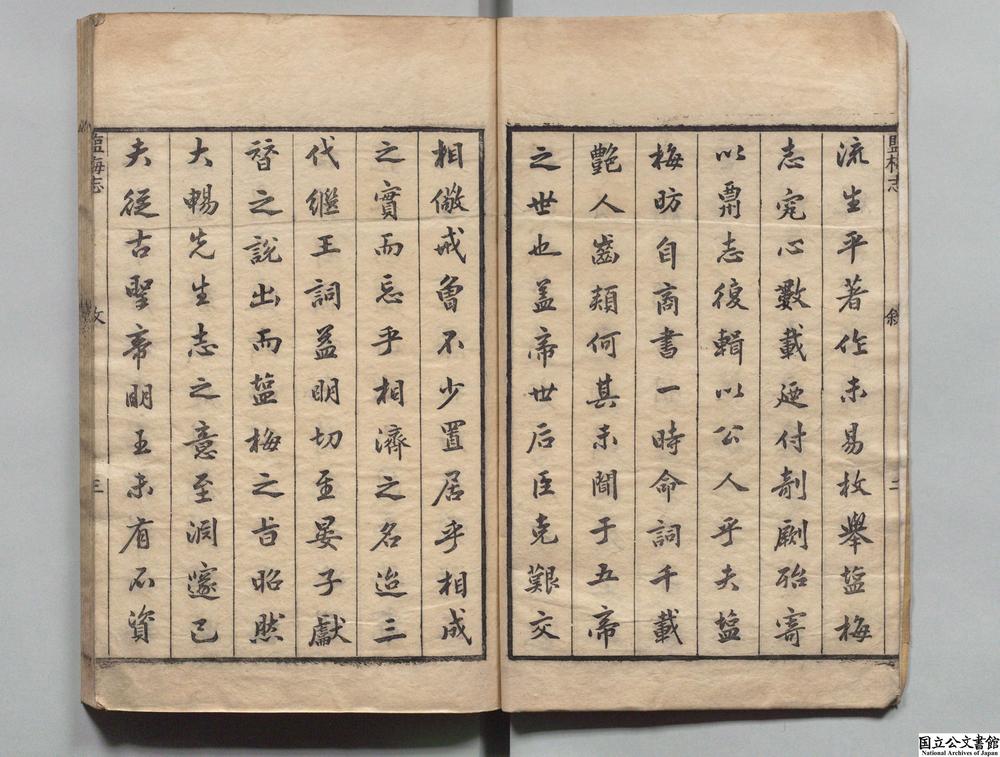 流生平著作未易枚舉塩梅
志究心數載廼付剞劂殆寄
以鬻志復輯以公人乎夫塩
梅昉自商書一時命詞千載
艷人齒頰何其未聞于五帝
之世也盖帝世后臣克艱交
相儆戒曾不少置居乎相成
之實而忘乎相濟之名迨三
代繼王詞益明切至晏子獻
替之說出而塩梅之旨昭然
大暢先生志之意至淵邃已
夫從古聖帝明王未有不資
塩梅志
敘
二
塩梅志
三
国立公文書館
National Archives of Japan